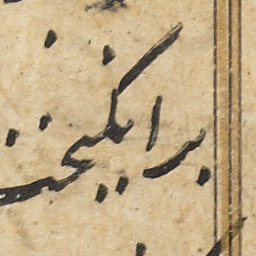 برانکیخت